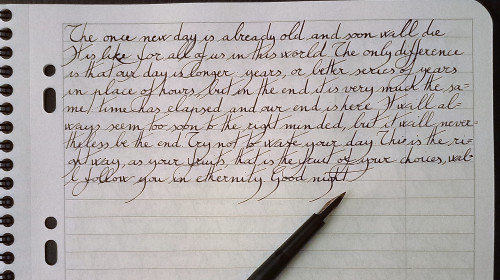 The once new day is already old and soon wall die
It is like for all of us in this world. The only difference
is that our day is longer, years, or better series of years
in place of hours, but in the end it is very much the sa-
me, time has elapsed and our end is here. It wall al-
ways seem too soon to the right minded, but it wall never-
theless be the end. Try not to waste your day. This is the ri-
ght way, as your fruits, that is the fruit of your choices, wal-
l follow you in ethernity. Good night